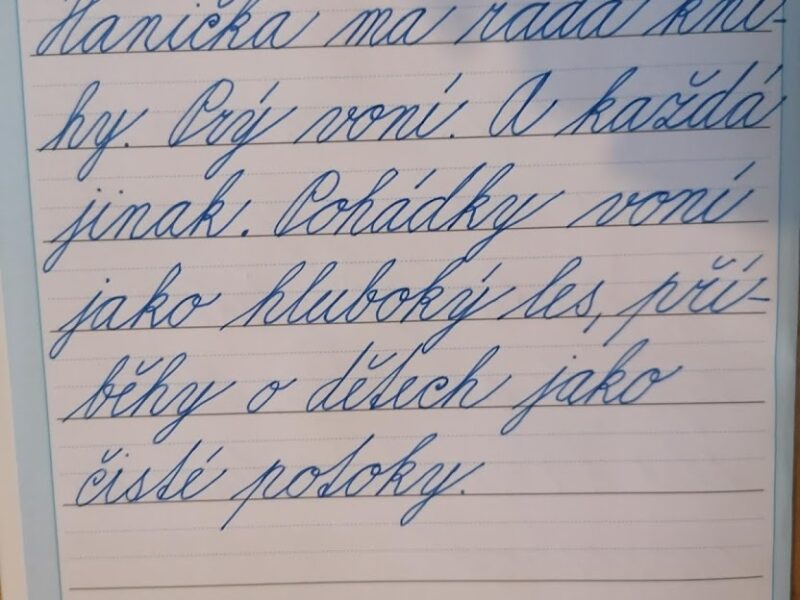 Hanička má ráda kni-
hy. Prý voní. A každá
jinak. Pohádky voní
jako hluboký les, pří-
běhy o dětech jako
čisté potoky.